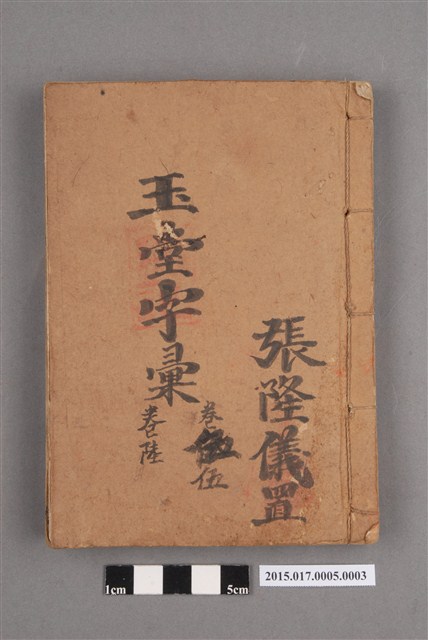 張隆儀置
玉堂字彙
卷伍
卷陸
1cm
5cm
2015.017.0005.0003